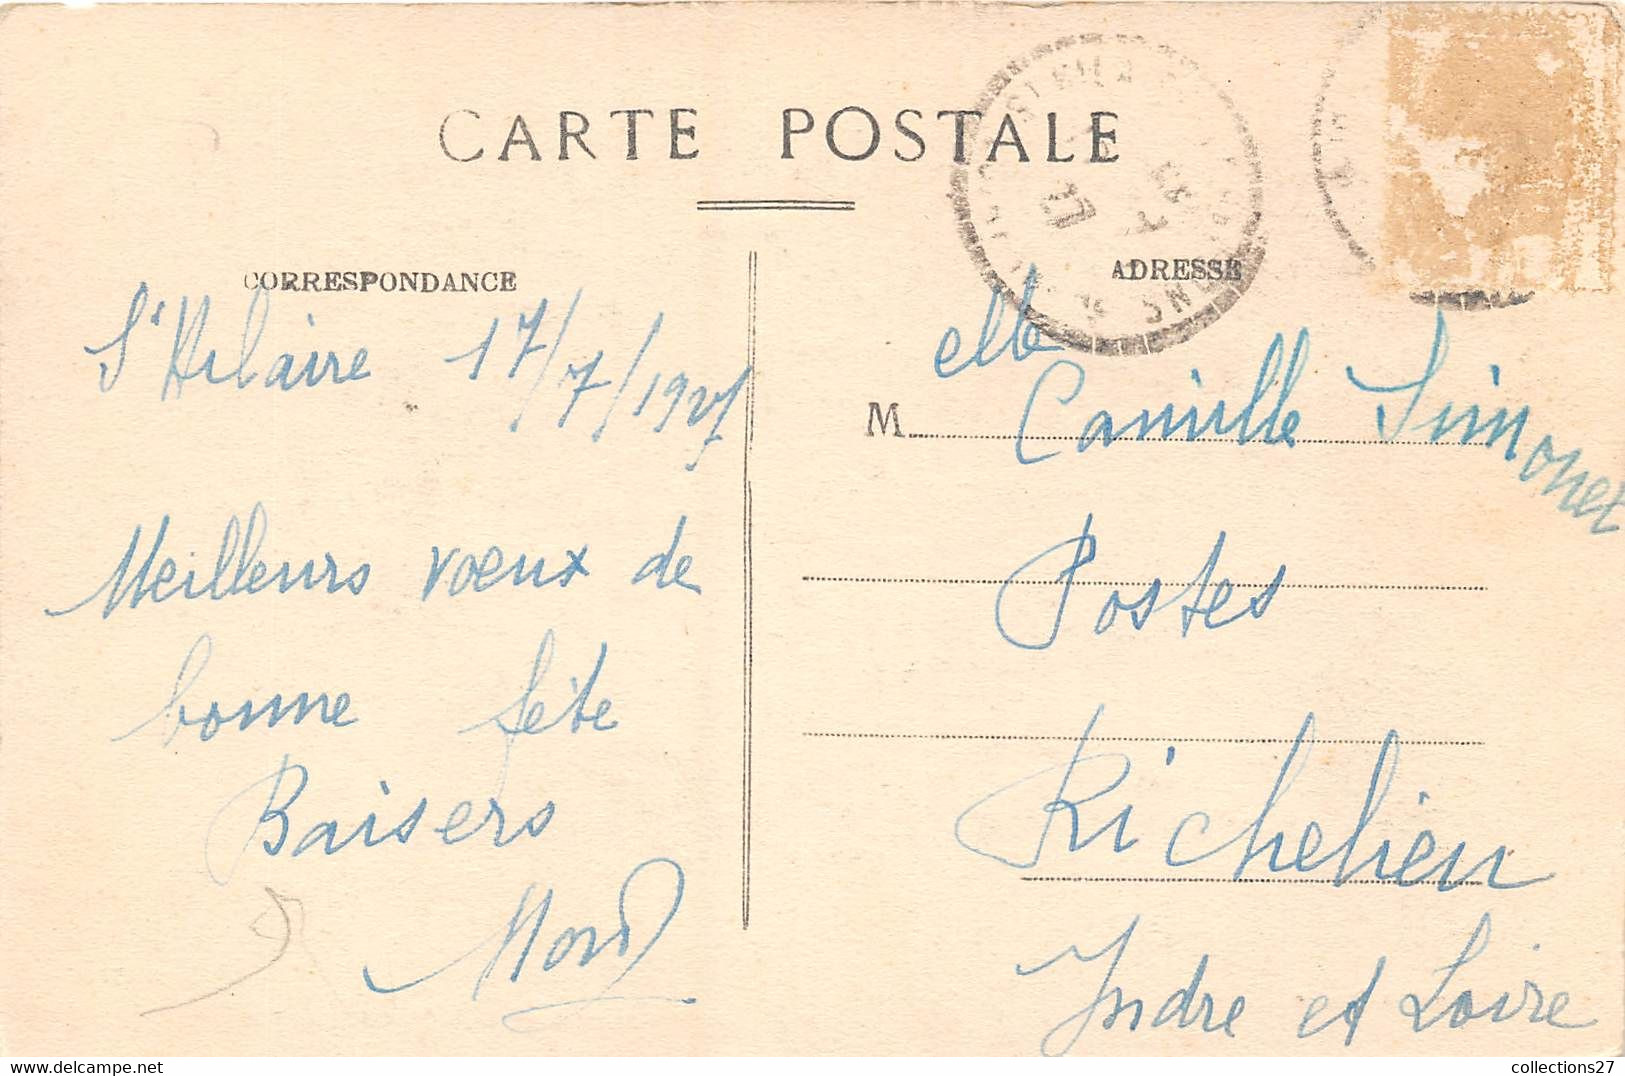 CARTE POSTALE
CORRESPONDANCE
St Hilaire 17/7/1927
Meilleurs vœux de
bonne fête
Baisers
ADRESSE
M elle
Camille Simonet
Postes
Richelieu
Indre et Loire
27
collections27